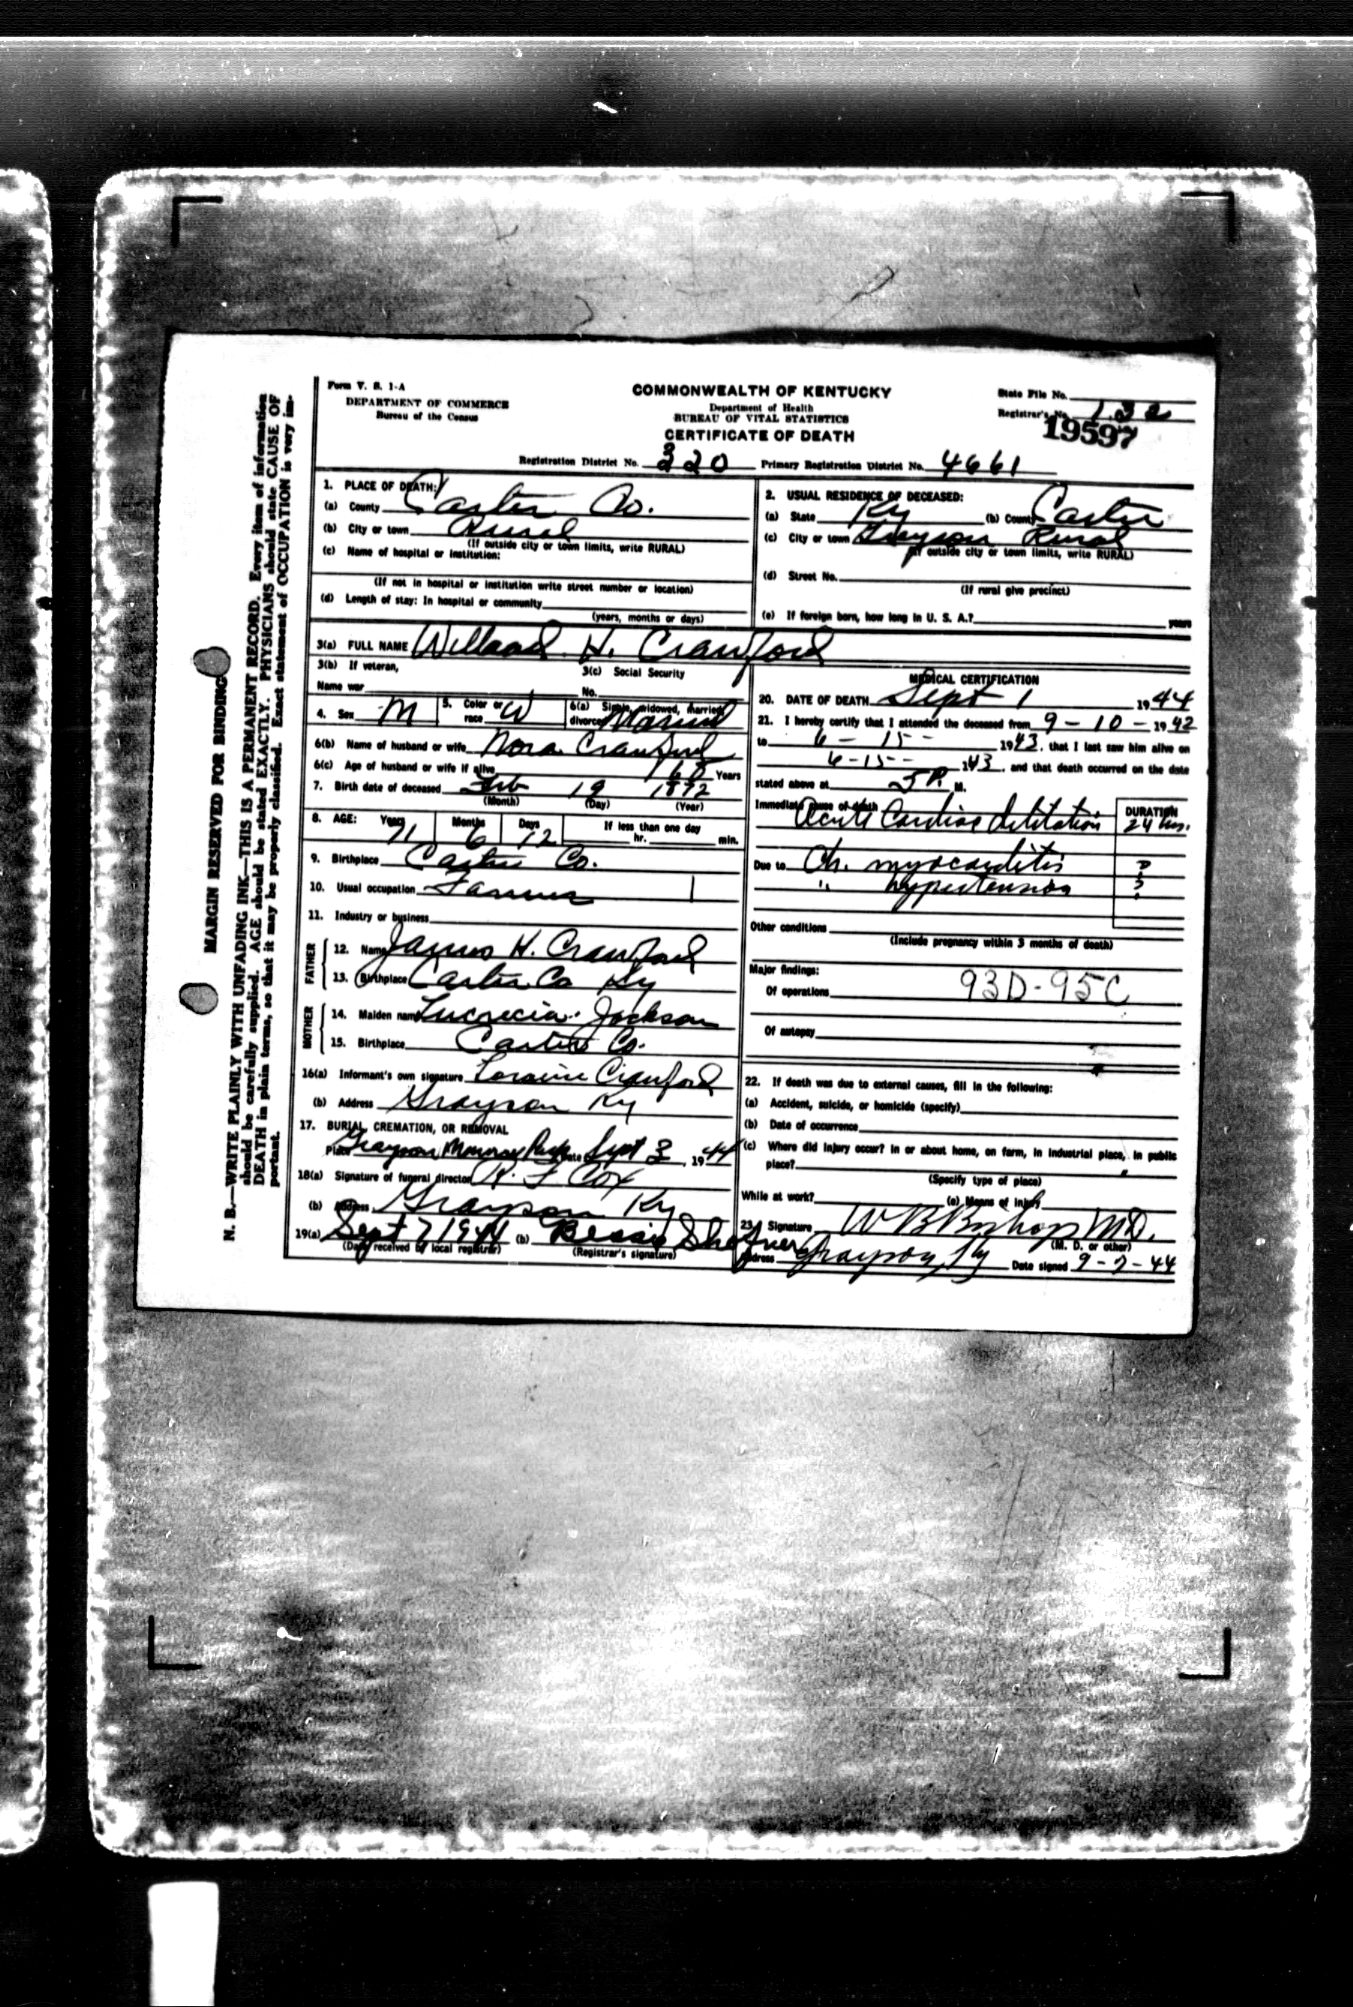 Form V. S. 1-A
DEPARTMENT OF COMMERCE
Bureau of the Census
COMMONWEALTH OF KENTUCKY
Department of Health
BUREAU OF VITAL STATISTICS
CERTIFICATE OF DEATH
State File No.
Registrar's No. 132
19597
Registration District No. 220 Primary Registration District No. 4661
1. PLACE OF DEATH:
(a) County Carter Co.
(b) City or town Rural
(If outside city or town limits, write RURAL)
(c) Name of hospital or institution:
(If not in hospital or institution write street number or location)
(d) Length of stay: In hospital or community
(years, months or days)
2. USUAL RESIDENCE OF DECEASED:
(a) State Ky (b) County Carter
(c) City or town Grayson Rural
(If outside city or town limits, write RURAL)
(d) Street No.
(If rural give precinct)
(e) If foreign born, how long in U. S. A.? years
3(a) FULL NAME Willard H. Crawford
3(b) If veteran,
Name war
3(c) Social Security
No.
4. Sex M 5. Color or race W 6(a) Single, widowed, married, divorced Married
6(b) Name of husband or wife Nora Crawford
6(c) Age of husband or wife if alive 68 Years
7. Birth date of deceased Feb 19 1872
(Month) (Day) (Year)
8. AGE: Years 71 Months 6 Days 12 If less than one day
hr. min.
9. Birthplace Carter Co.
10. Usual occupation Farmer
11. Industry or business
FATHER
12. Name James H. Crawford
13. Birthplace Carter Co Ky
MOTHER
14. Maiden name Lucrecia Jackson
15. Birthplace Carter Co.
16(a) Informant's own signature Loraine Crawford
(b) Address Grayson Ky
17. BURIAL, CREMATION, OR REMOVAL
Place Grayson Memory Park Date Sept 3, 1944
18(a) Signature of funeral director R. F Cox
(b) Address Grayson Ky
19(a) Sept 7 1944 (b) Bessie
(Date received by local registrar) (Registrar's signature)
MEDICAL CERTIFICATION
20. DATE OF DEATH Sept 1 1944
21. I hereby certify that I attended the deceased from 9-10-1942
to 6-15-- 1943, that I last saw him alive on
6-15-- 143, and that death occurred on the date
stated above at 5 P. M.
Immediate cause of death DURATION
Acute Cardiac dilitation 24 hrs.
Due to Ch. myocarditis ?
" hypertension ?
Other conditions
(Include pregnancy within 3 months of death)
Major findings:
Of operations 93D-95C
Of autopsy
22. If death was due to external causes, fill in the following:
(a) Accident, suicide, or homicide (specify)
(b) Date of occurrence
(c) Where did injury occur? In or about home, on farm, in industrial place, in public
place?
(Specify type of place)
While at work? (e) Means of injury
23. Signature W B Bishop M.D.
(M. D. or other)
Address Grayson, Ky Date signed 9-7-44
MARGIN RESERVED FOR BINDING
N. B.—WRITE PLAINLY WITH UNFADING INK—THIS IS A PERMANENT RECORD. Every item of information
should be carefully supplied. AGE should be stated EXACTLY. PHYSICIANS should state CAUSE OF
DEATH in plain terms, so that it may be properly classified. Exact statement of OCCUPATION is very im-
portant.